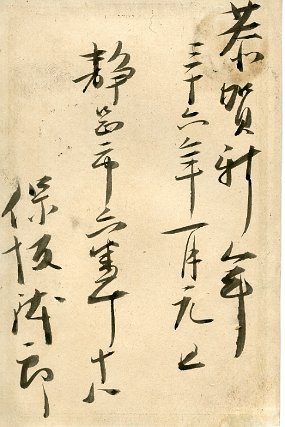 恭賀新年
三十六年一月元旦
静岡市六番丁十八
保坂郎